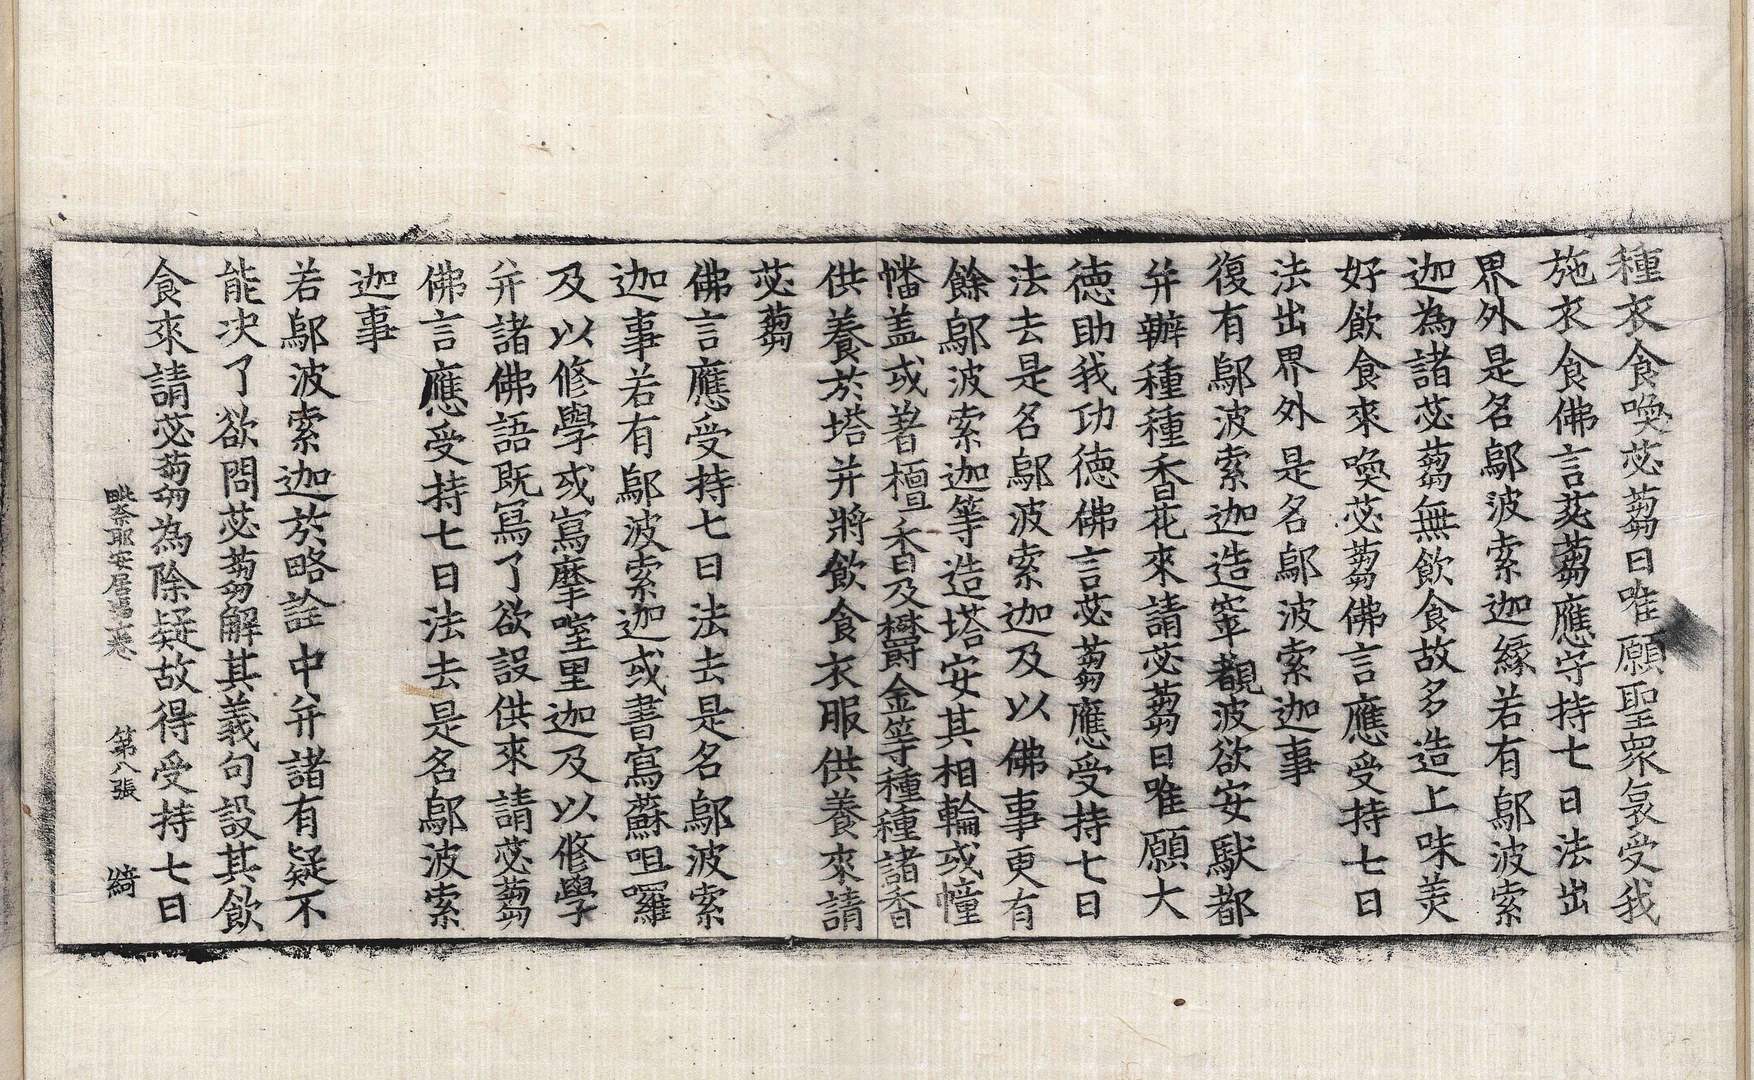 種衣食喚苾蒭曰唯願聖衆哀受我
施衣食佛言苾蒭應守持七日法出
界外是名鄔波索迦緣若有鄔波索
迦為諸苾蒭無飲食故多造上味羙
好飲食來喚苾蒭佛言應受持七日
法出界外是名鄔波索迦事
復有鄔波索迦造窣覩波欲安馱都
并辦種種香花來請苾蒭曰唯願大
德助我功德佛言苾蒭應受持七日
法去是名鄔波索迦及以佛事更有
餘鄔波索迦等造塔安其相輪或幢
幡盖或著檀香及欝金等種種諸香
供養於塔并將飲食衣服供養來請
苾蒭
佛言應受持七日法去是名鄔波索
迦事若有鄔波索迦或書寫蘇呾囉
及以修學或寫摩窒里迦及以修學
并諸佛語既寫了欲設供來請苾蒭
佛言應受持七日法去是名鄔波索
迦事
若鄔波索迦於略詮中并諸有疑不
能决了欲問苾蒭解其義句設其飲
食來請苾蒭為除疑故得受持七日
毗奈耶安居事一卷 第八張 綺